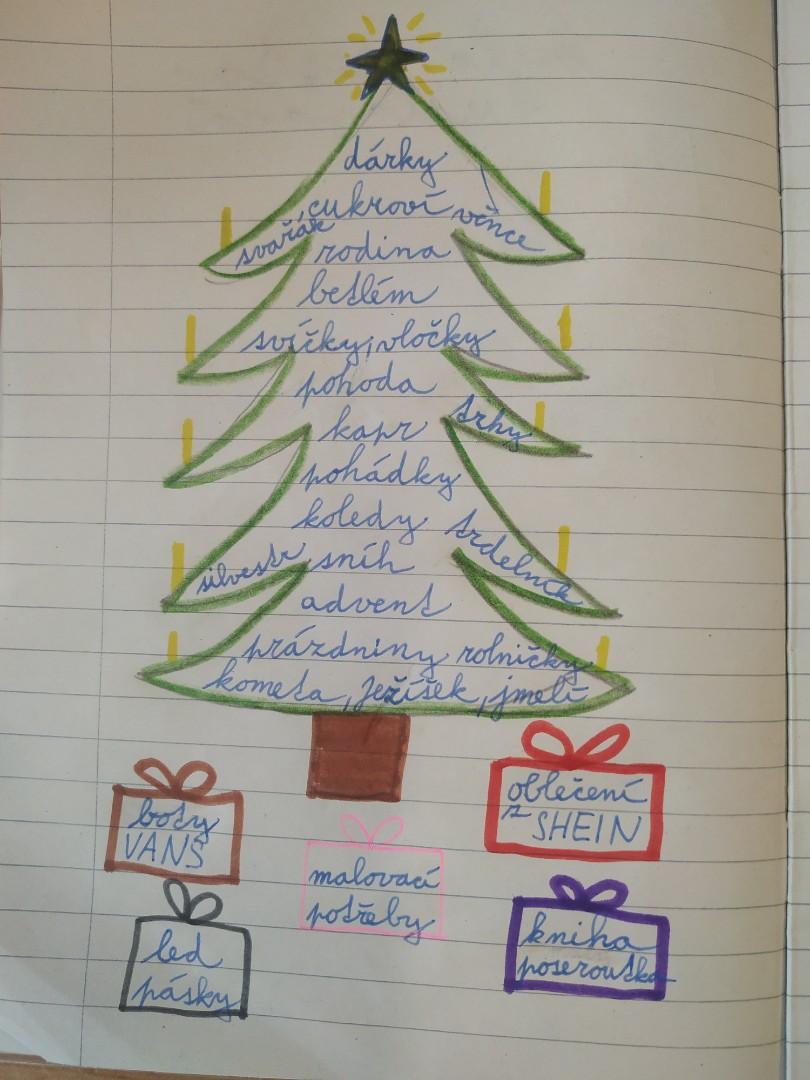 dárky
cukroví věnce
svařák rodina
betlém
svíčky, vločky
pohoda
kapr trhy
pohádky
koledy trdelník
silvestr sníh
advent
prázdniny rolničky
kometa, ježíšek, jmelí
oblečení
z SHEIN
boty
VANS
malovací
potřeby
kniha
poseroutka
led
pásky